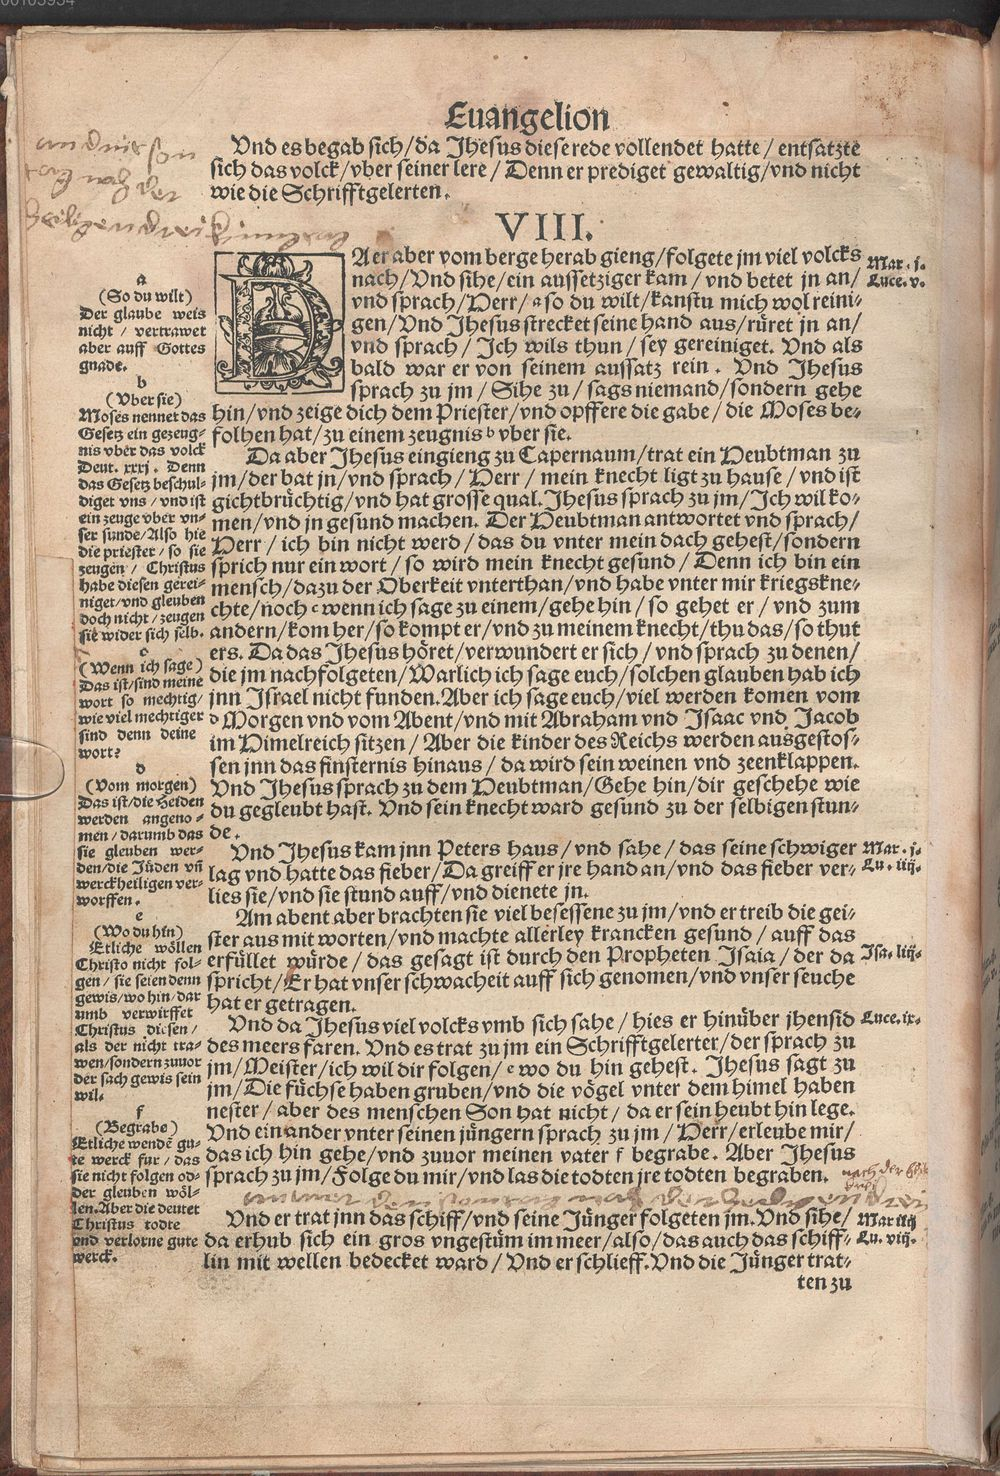 00103954
Euangelion
Vnd es begab sich/da Jhesus diese rede vollendet hatte/entsatztē
sich das volck/vber seiner lere/Denn er prediget gewaltig/vnd nicht
wie die Schrifftgelerten.
VIII.
DA er aber vom berge herab gieng/folgete jm viel volcks
nach/Vnd sihe/ein aussetziger kam/vnd betet jn an/
vnd sprach/Herr/ᵃso du wilt/kanstu mich wol reini-
gen/Vnd Jhesus strecket seine hand aus/rüret jn an/
vnd sprach/Ich wils thun/sey gereiniget. Vnd als
bald war er von seinem aussatz rein. Vnd Jhesus
sprach zu jm/Sihe zu/sags niemand/sondern gehe
hin/vnd zeige dich dem Priester/vnd opffere die gabe/die Moses be-
folhen hat/zu einem zeugnis ᵇ vber sie.
Da aber Jhesus eingieng zu Capernaum/trat ein Heubtman zu
jm/der bat jn/vnd sprach/Herr/mein knecht ligt zu hause/vnd ist
gichtbrüchtig/vnd hat grosse qual. Jhesus sprach zu jm/Ich wil ko-
men/vnd jn gesund machen. Der Heubtman antwortet vnd sprach/
Herr/ich bin nicht werd/das du vnter mein dach gehest/sondern
sprich nur ein wort/so wird mein knecht gesund/Denn ich bin ein
mensch/dazu der Oberkeit vnterthan/vnd habe vnter mir kriegskne-
chte/noch ᶜ wenn ich sage zu einem/gehe hin/so gehet er/vnd zum
andern/kom her/so kompt er/vnd zu meinem knecht/thu das/so thut
ers. Da das Jhesus höret/verwundert er sich/vnd sprach zu denen/
die jm nachfolgeten/Warlich ich sage euch/solchen glauben hab ich
jnn Israel nicht funden. Aber ich sage euch/viel werden komen vom
ᵈ Morgen vnd vom Abent/vnd mit Abraham vnd Isaac vnd Jacob
im Himelreich sitzen/Aber die kinder des Reichs werden ausgestos-
sen jnn das finsternis hinaus/da wird sein weinen vnd zeenklappen.
Vnd Jhesus sprach zu dem Heubtman/Gehe hin/dir geschehe wie
du gegleubt hast. Vnd sein knecht ward gesund zu der selbigen stun-
de.
Vnd Jhesus kam jnn Peters haus/vnd sahe/das seine schwiger
lag vnd hatte das fieber/Da greiff er jre hand an/vnd das fieber ver-
lies sie/vnd sie stund auff/vnd dienete jn.
Am abent aber brachten sie viel besessene zu jm/vnd er treib die gei-
ster aus mit worten/vnd machte allerley krancken gesund/auff das
erfüllet würde/das gesagt ist durch den Propheten Isaia/der da
spricht/Er hat vnser schwacheit auff sich genomen/vnd vnser seuche
hat er getragen.
Vnd da Jhesus viel volcks vmb sich sahe/hies er hinüber jhensid
des meers faren. Vnd es trat zu jm ein Schrifftgelerter/der sprach zu
jm/Meister/ich wil dir folgen/ᵉ wo du hin gehest. Jhesus sagt zu
jm/Die füchse haben gruben/vnd die vögel vnter dem himel haben
nester/aber des menschen Son hat nicht/da er sein heubt hin lege.
Vnd ein ander vnter seinen jüngern sprach zu jm/Herr/erleube mir/
das ich hin gehe/vnd zuuor meinen vater f begrabe. Aber Jhesus
sprach zu jm/Folge du mir/vnd las die todten jre todten begraben.
Vnd er trat jnn das schiff/vnd seine Jünger folgeten jm. Vnd sihe/
da erhub sich ein gros vngestüm im meer/also/das auch das schiff-
lin mit wellen bedecket ward/Vnd er schlieff. Vnd die Jünger trat-
ten zu
a
(So du wilt)
Der glaube weis
nicht/vertrawet
aber auff Gottes
gnade.
b
(Vber sie)
Moses nennet das
Gesetz ein gezeug-
nis vber das volck
Deut. xxxj. Denn
das Gesetz beschul-
diget vns/vnd ist
ein zeuge vber vn-
ser sunde/Also hie
die priester/so sie
zeugen/Christus
habe diesen gerei-
niget/vnd gleuben
doch nicht/zeugen
sie wider sich selb.
c
(Wenn ich sage)
Das ist/sind meine
wort so mechtig/
wie viel mechtiger
sind denn deine
wort?
d
(Vom morgen)
Das ist/die Heiden
werden angeno-
men/darumb das
sie gleuben wer-
den/die Jüden vn̄
werckheiligen ver-
worffen.
e
(Wo du hin)
Etliche wöllen
Christo nicht fol-
gen/sie seien denn
gewis/wo hin/dar
umb verwirffet
Christus diesen/
als der nicht tra-
wen/sondern zuuor
der sach gewis sein
wil.
f
(Begrabe)
Etliche wendē gu-
te werck fur/das
sie nicht folgen od-
der gleuben wöl-
len. Aber die deutet
Christus todte
vnd verlorne gute
werck.
Mar. j.
Luce. v.
Mar. j.
Lu. iiij.
Isa. liij.
Luce. ix.
Mar iiij
Lu. viij.